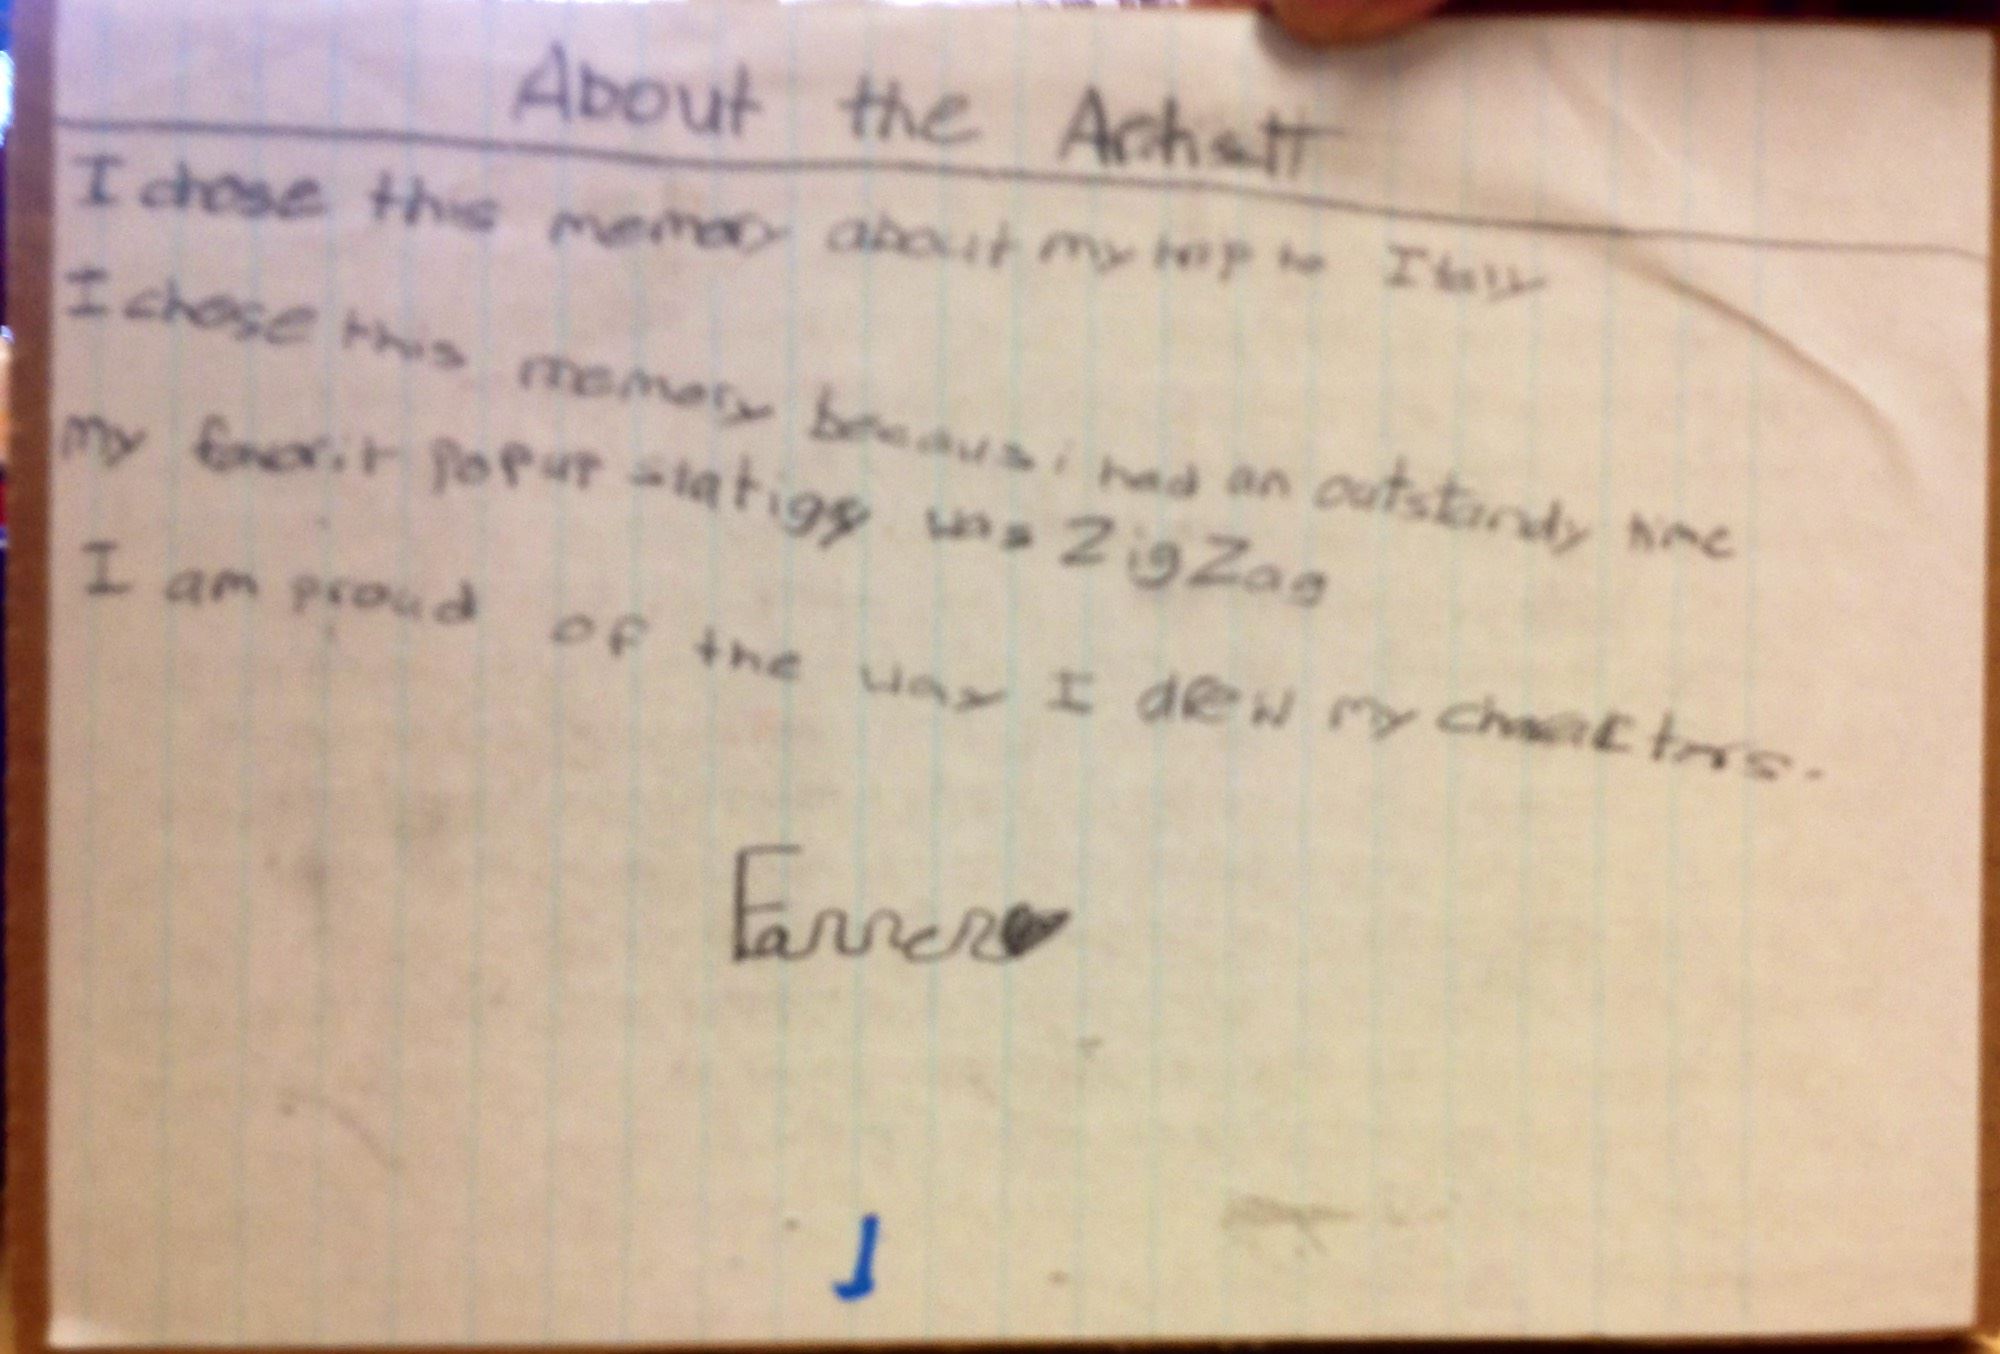 About the
I chose this memory about my trip to Italy
I chose this memory becaus i had an outstandy time
my favorit Pop up was ZigZag
I am proud of the way I drew my
Farrer
J